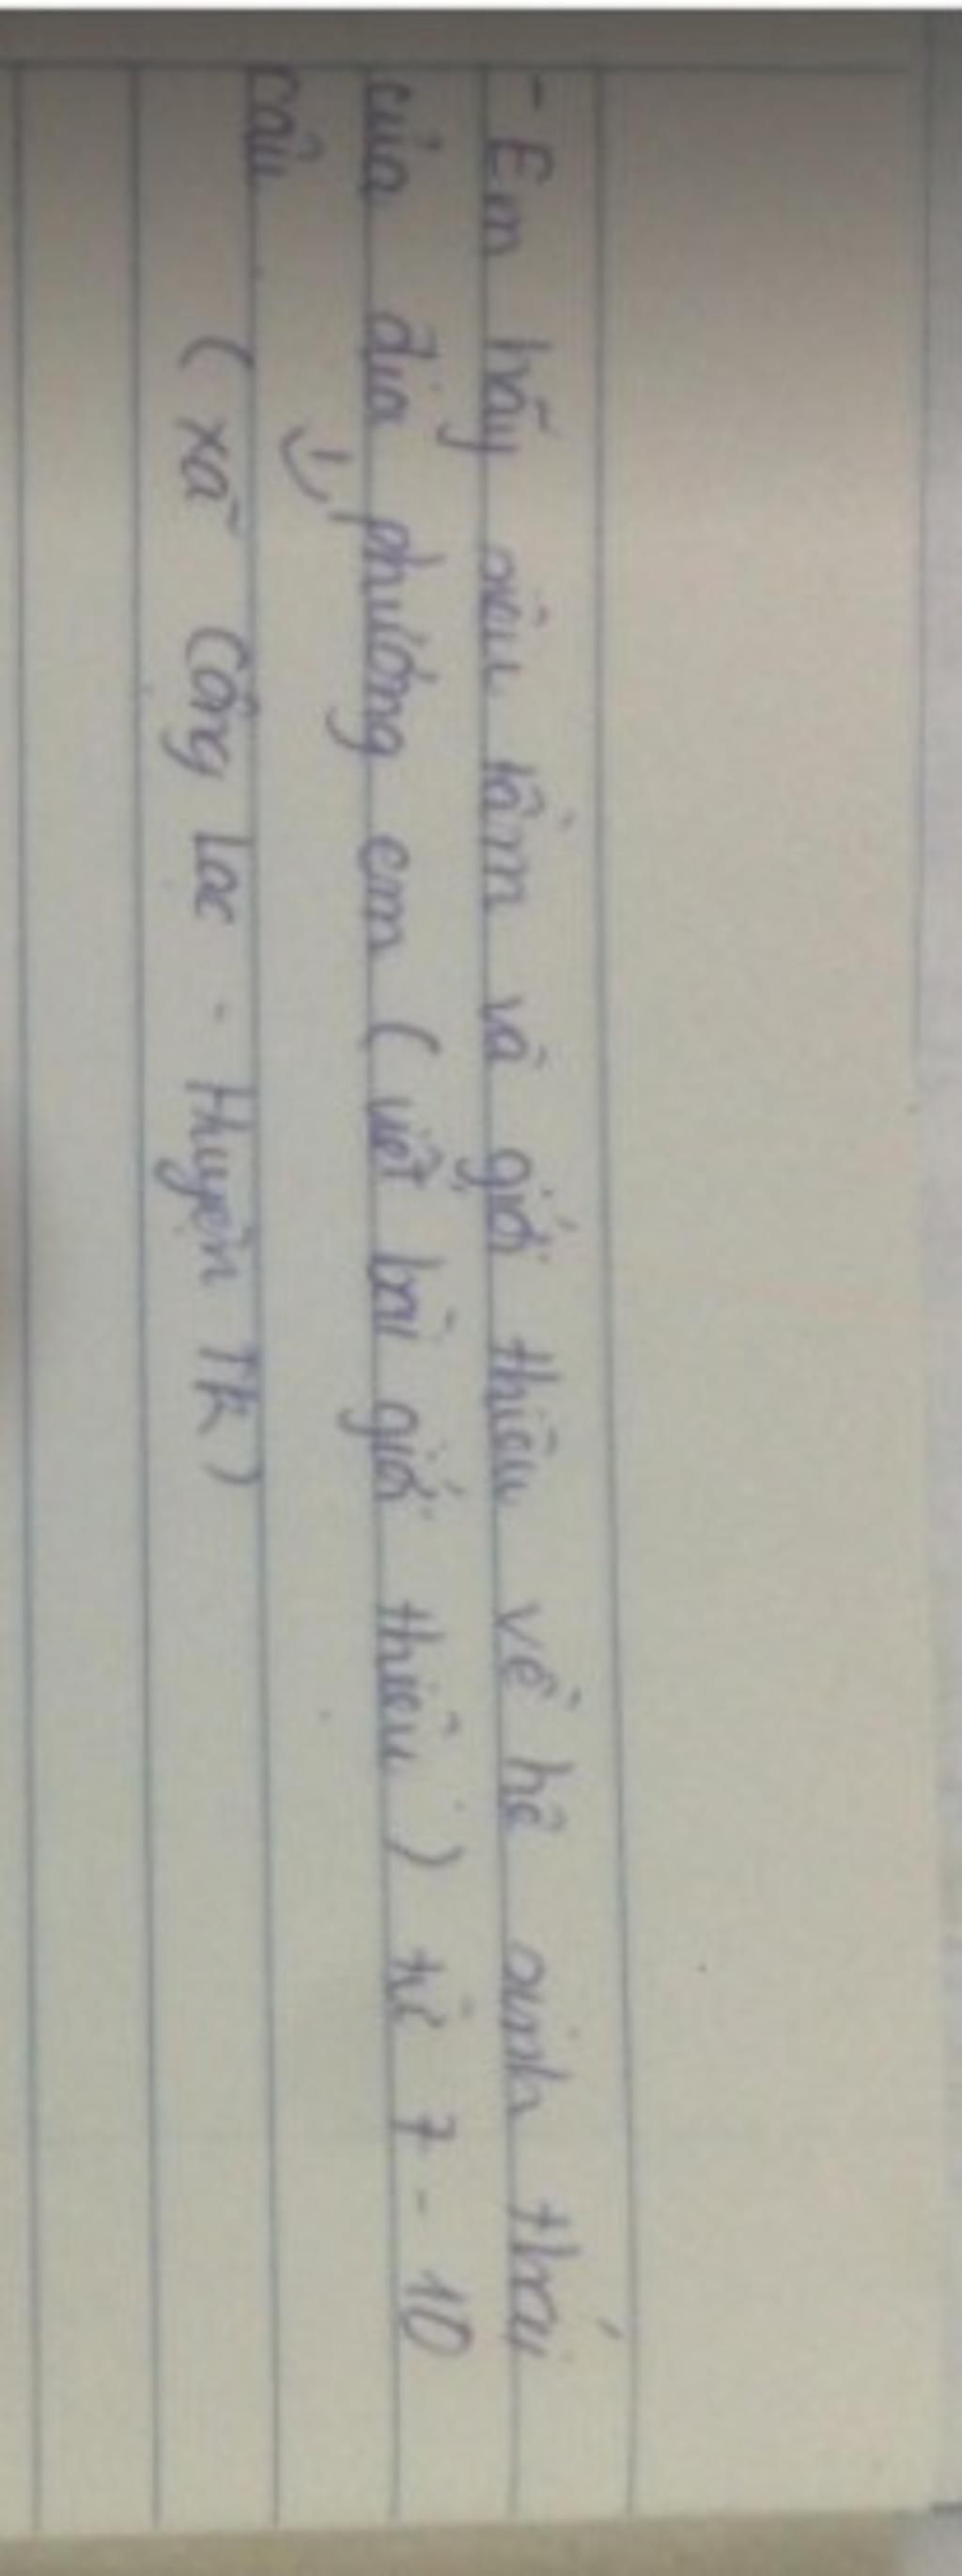 - Em hãy sưu tầm và giới thiệu về hệ sinh thái
của địa phương em (viết bài giới thiệu) từ 7 - 10
câu.
(xã Cộng Lạc - Huyện TK)